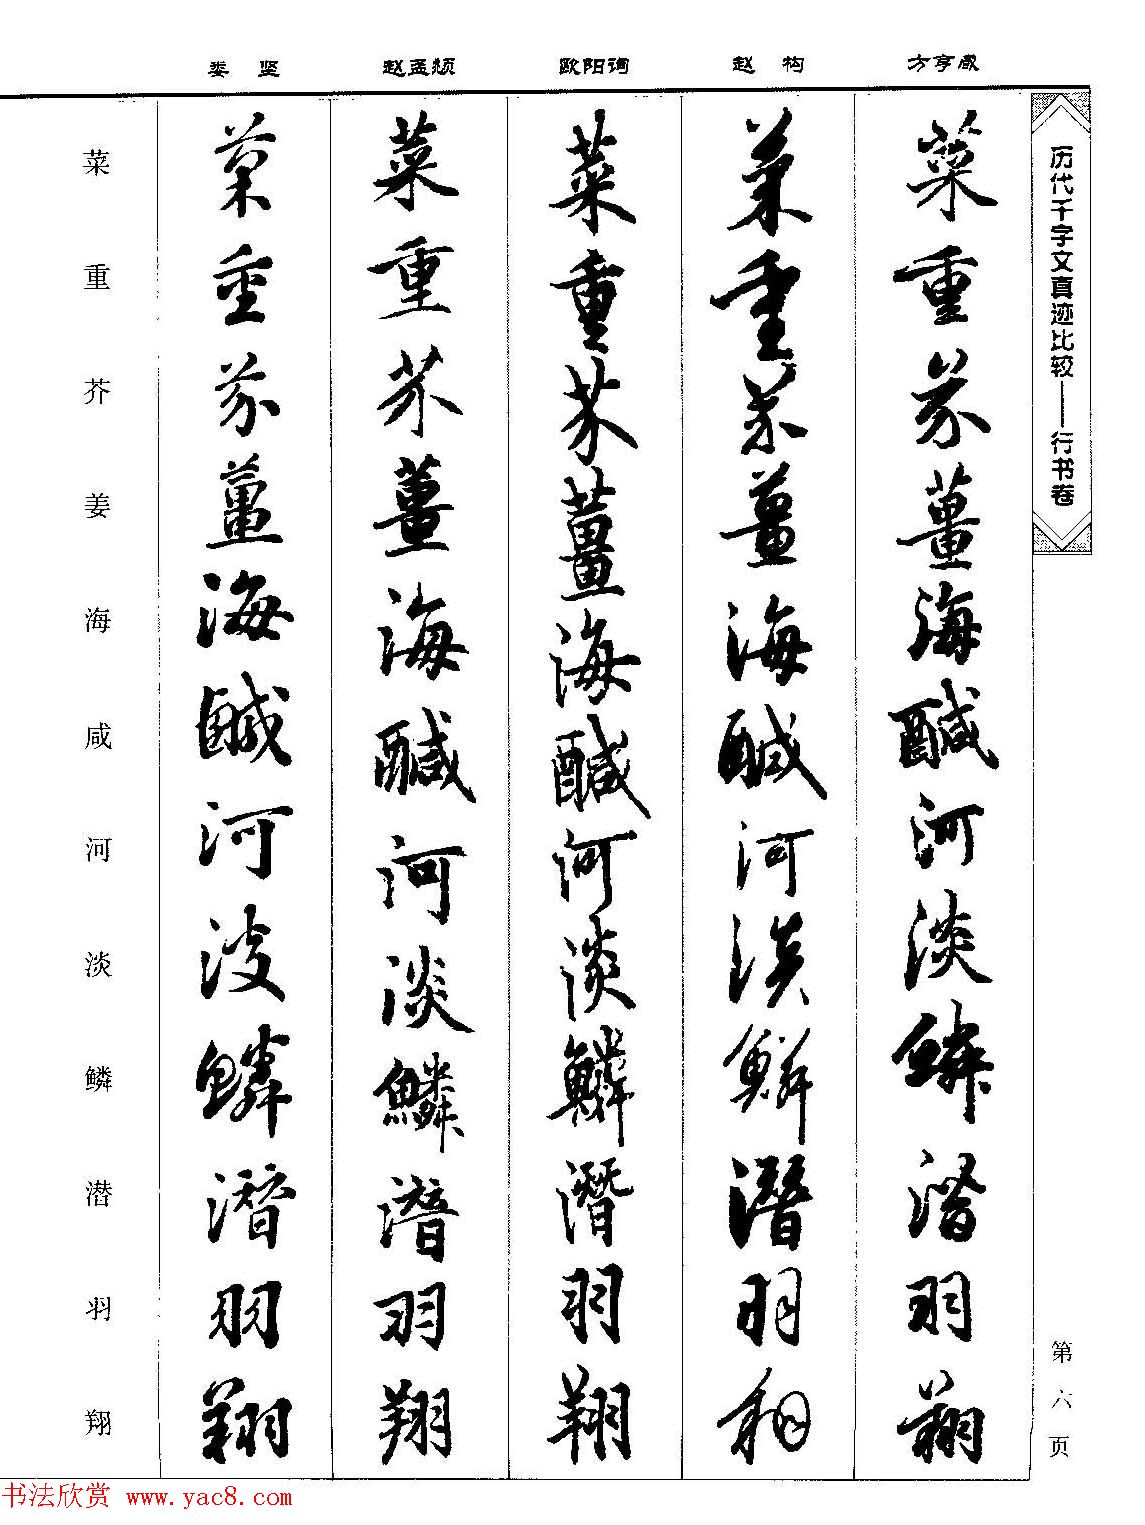 娄坚 赵孟頫 欧阳询 赵构 方亨咸
历代千字文真迹比较——行书卷
菜重芥薑海鹹河淡鱗潛羽翔
菜重芥薑海鹹河淡鱗潛羽翔
菜重芥薑海鹹河淡鱗潛羽翔
菜重芥薑海鹹河淡鱗潛羽翔
菜重芥薑海鹹河淡鱗潛羽翔
菜重芥姜海咸河淡鳞潜羽翔
第六页
书法欣赏 www.yac8.com